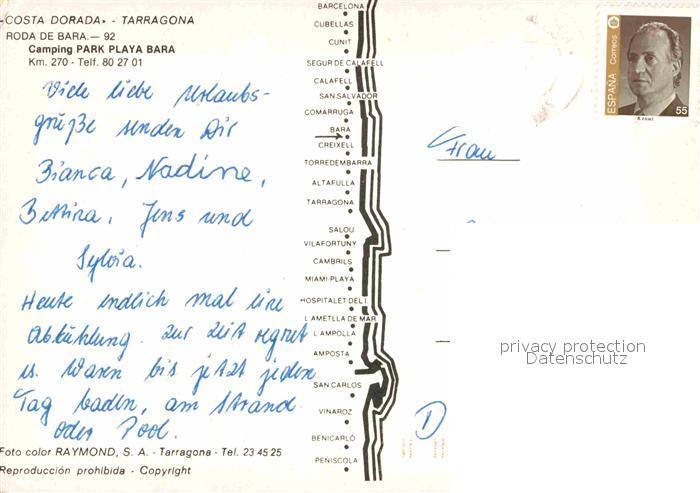 «COSTA DORADA» - TARRAGONA
RODA DE BARA.— 92
Camping PARK PLAYA BARA
Km. 270 - Telf. 80 27 01
Viele liebe Urlaubs-
grüße senden Dir
Bianca, Nadine,
Bettina, Jens und
Sylvia.
Heute endlich mal eine
Abkühlung. Zur Zeit regnet
es. Waren bis jetzt jeden
Tag baden, am Strand
oder Pool.
Foto color RAYMOND, S. A. - Tarragona - Tel. 23 45 25
Reproducción prohibida - Copyright
BARCELONA
CUBELLAS
CUNIT
SEGUR DE CALAFELL
CALAFELL
SAN SALVADOR
COMARRUGA
BARA
CREIXELL
TORREDEMBARRA
ALTAFULLA
TARRAGONA
SALOU
VILAFORTUNY
CAMBRILS
MIAMI-PLAYA
HOSPITALET DEL I.
L'AMETLLA DE MAR
L'AMPOLLA
AMPOSTA
SAN CARLOS
VINAROZ
BENICARLÓ
PEÑISCOLA
ESPAÑA Correos
55
Frau
privacy protection
Datenschutz
D